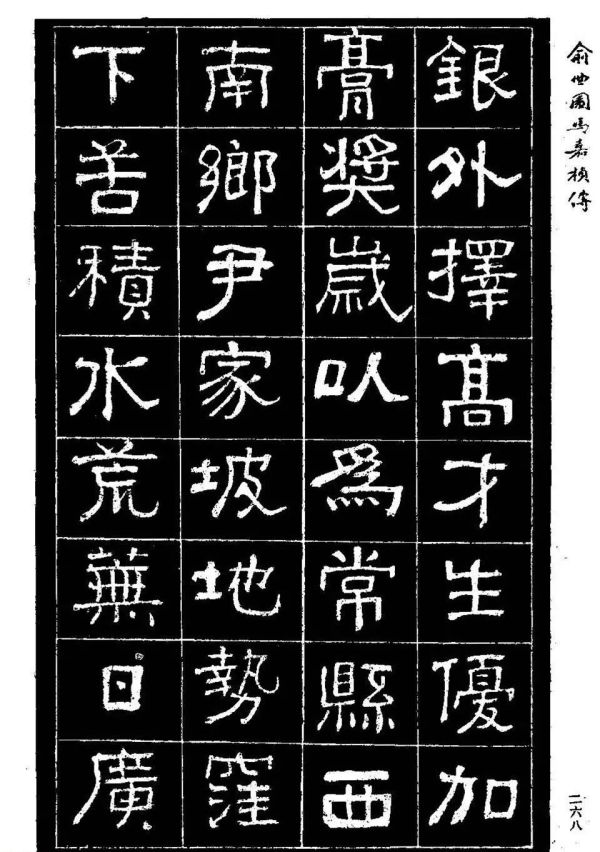 俞曲園馬嘉楨傳
銀外擇髙才生優加
膏奬歲以爲常縣西
南鄉尹家坡地勢窪
下苦積水荒蕪日廣
二六八